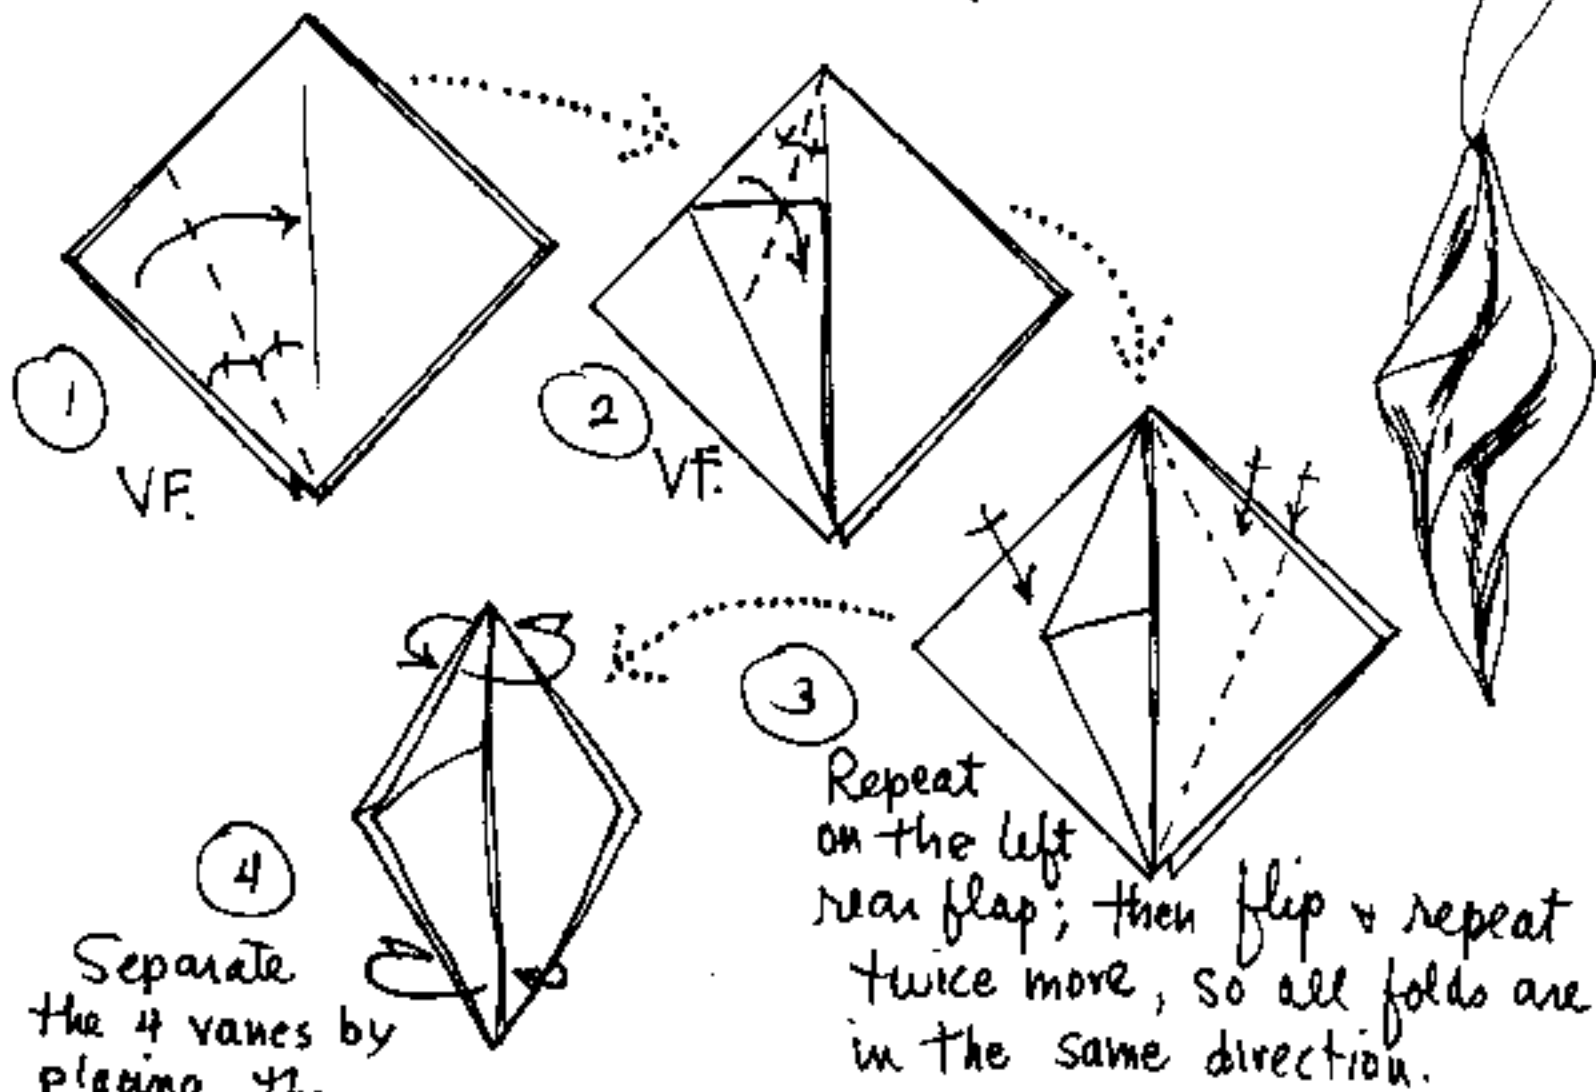 1
VF.
2
VF.
3
Repeat
on the left
rear flap; then flip & repeat
twice more, so all folds are
in the same direction.
4
Separate
the 4 vanes by
placing